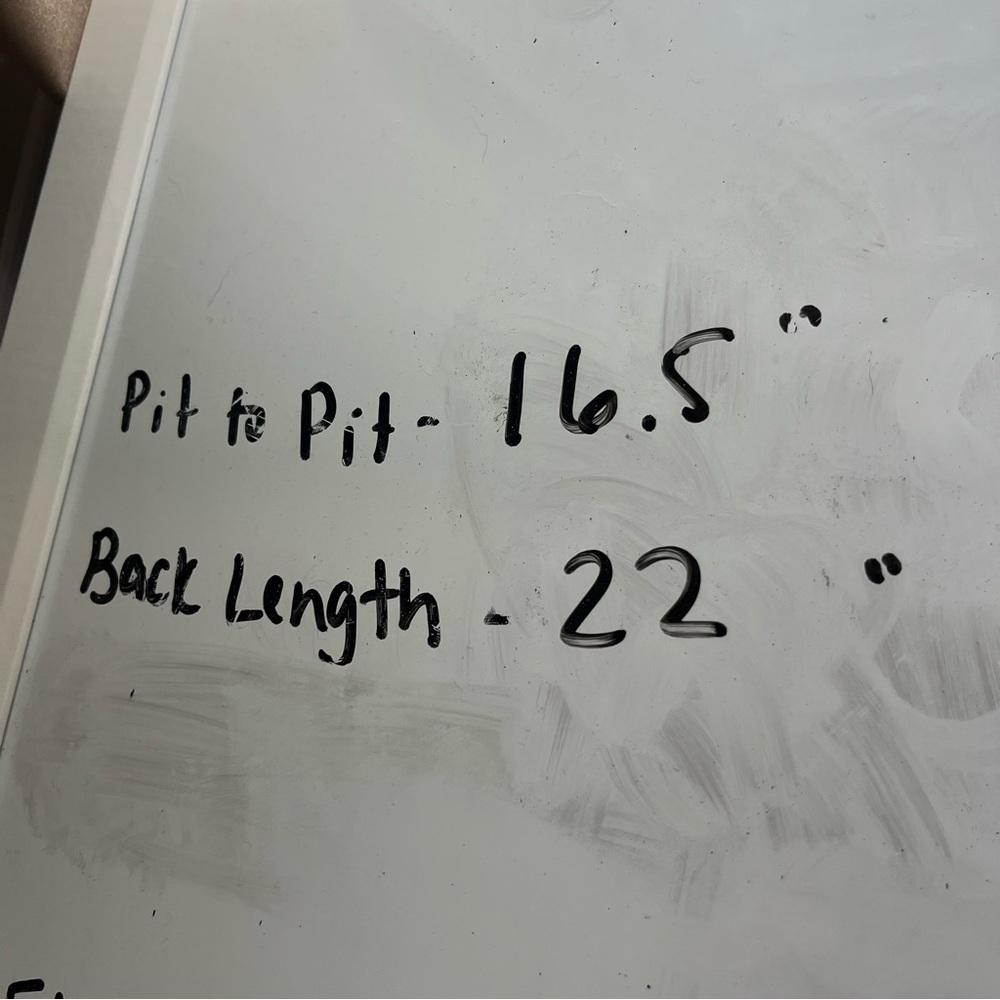 Pit to Pit - 16.5"
Back Length - 22 "